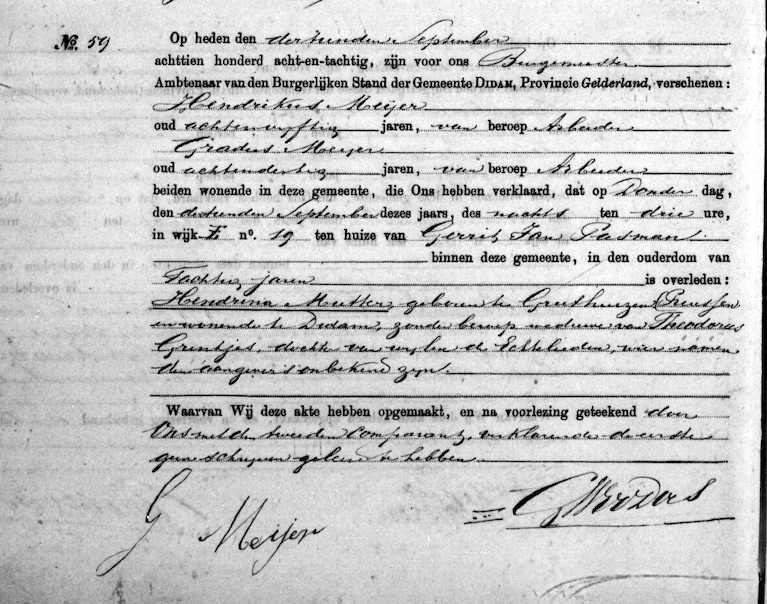 No. 59
Op heden den dertienden September
achttien honderd acht-en-tachtig, zijn voor ons Burgemeester
Ambtenaar van den Burgerlijken Stand der Gemeente DIDAM, Provincie Gelderland, verschenen:
Hendrikus Meijer
oud achtenvyftig jaren, van beroep Arbeider
Gradus Meijer
oud achtendertig jaren, van beroep Arbeider
beiden wonende in deze gemeente, die Ons hebben verklaard, dat op Donder dag,
den dertienden September dezes jaars, des nachts ten drie ure,
in wijk E no. 19 ten huize van Gerrit Jan Pasman
binnen deze gemeente, in den ouderdom van
Tachtig jaren is overleden:
Hendrina geboren te (Pruissen
en wonende te Didam, zonder beroep weduwe van Theodorus
Grentjes, dochter van wylen de Echtelieden, wier namen
den aangevers onbekend zyn.
Waarvan Wij deze akte hebben opgemaakt, en na voorlezing geteekend door
Ons met den tweeden Comparant, verklarende de eerste
geen schryven geleerd te hebben.
G Meijer